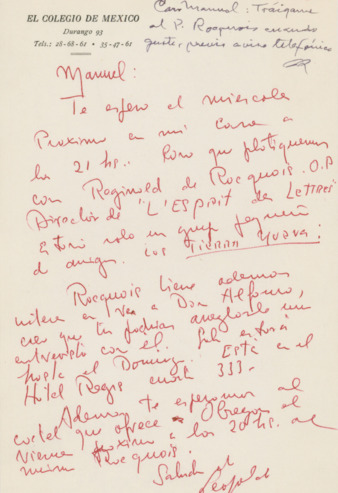 EL COLEGIO DE MEXICO
Durango 93
Tels.: 28-68-61 · 35-47-61
Caro Manuel: Tráigame
al P. Rocquois cuando
guste, previo aviso telefónico
AR
Manuel:
Te espero el miercoles
Proximo en mi casa a
las 21 hs. Para que platiquemos
con Reginold de Rocquois. O.P.
Director de "L'Esprit des Lettres"
Estará solo un grup pequeño
d amigos. Los Tierra Nueva!
Rocquois tiene ademas
interes en ver a Don Alfonso,
creo que tu podrias arreglarle una
entrevista con el. Solo estará
hasta el Domingo. Está en el
Hotel Regis cuarto 333.-
Ademas te esperamos al
coctel que ofrece Obregon el
viernes proximo a las 20 hs. al
mismo Rocquois.
Saludos
Leopoldo